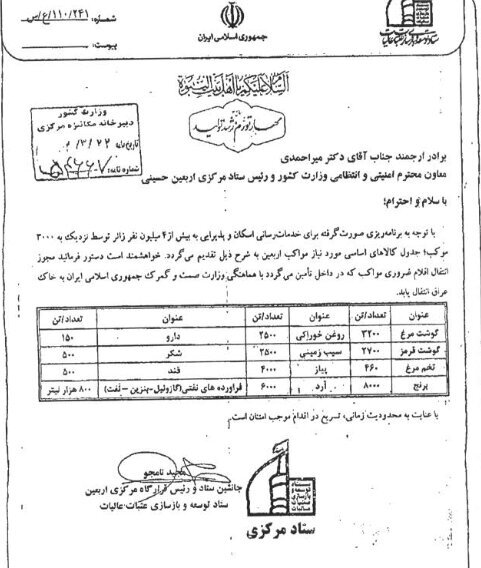 شماره: ۱۱۰/۲۴۱/ع/ص
پیوست:
جمهوری اسلامی ایران
السلام علیکم یا اهل بیت النبوه
مهار تورم رشد تولید
وزارت کشور
دبیرخانه مکانیزه مرکزی
تاریخ نامه
شماره نامه:
برادر ارجمند جناب آقای دکتر میراحمدی
معاون محترم امنیتی و انتظامی وزارت کشور و رئیس ستاد مرکزی اربعین حسینی
با سلام و احترام؛
با توجه به برنامه‌ریزی صورت‌گرفته برای خدمات‌رسانی اسکان و پذیرایی به بیش از ۴ میلیون نفر زائر توسط نزدیک به ۳۰۰۰
موکب؛ جدول کالاهای اساسی مورد نیاز مواکب اربعین به شرح ذیل تقدیم می‌گردد. خواهشمند است دستور فرمائید مجوز
انتقال اقلام ضروری مواکب که در داخل تأمین می‌گردد با هماهنگی وزارت صمت و گمرک جمهوری اسلامی ایران به خاک
عراق انتقال یابد.
عنوان تعداد/تن عنوان تعداد/تن عنوان تعداد/تن
گوشت مرغ ۳۲۰۰ روغن خوراکی ۲۵۰۰ دارو ۱۵۰
گوشت قرمز ۲۷۰۰ سیب زمینی ۲۵۰۰ شکر ۵۰۰
تخم مرغ ۴۶۰ پیاز ۴۰۰۰ قند ۵۰۰
برنج ۸۰۰۰ آرد ۶۰۰۰ فراورده های نفتی (گازوئیل-بنزین-نفت) ۸۰۰ هزار لیتر
با عنایت به محدودیت زمانی، تسریع در اقدام موجب امتنان است.
مجید نامجو
جانشین ستاد و رئیس قرارگاه مرکزی اربعین
ستاد توسعه و بازسازی عتبات عالیات
ستاد
توسعه و
بازسازی
عتبات
عالیات
ستاد مرکزی